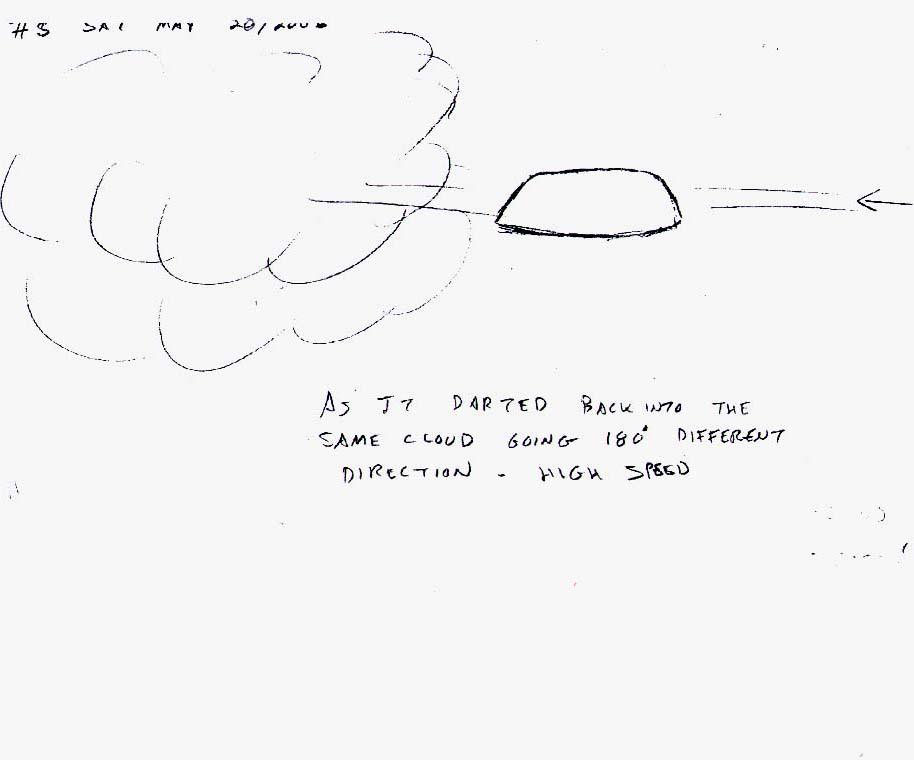 #3 SAT MAY 20/2000
AS IT DARTED BACK INTO THE
SAME CLOUD GOING 180° DIFFERENT
DIRECTION - HIGH SPEED